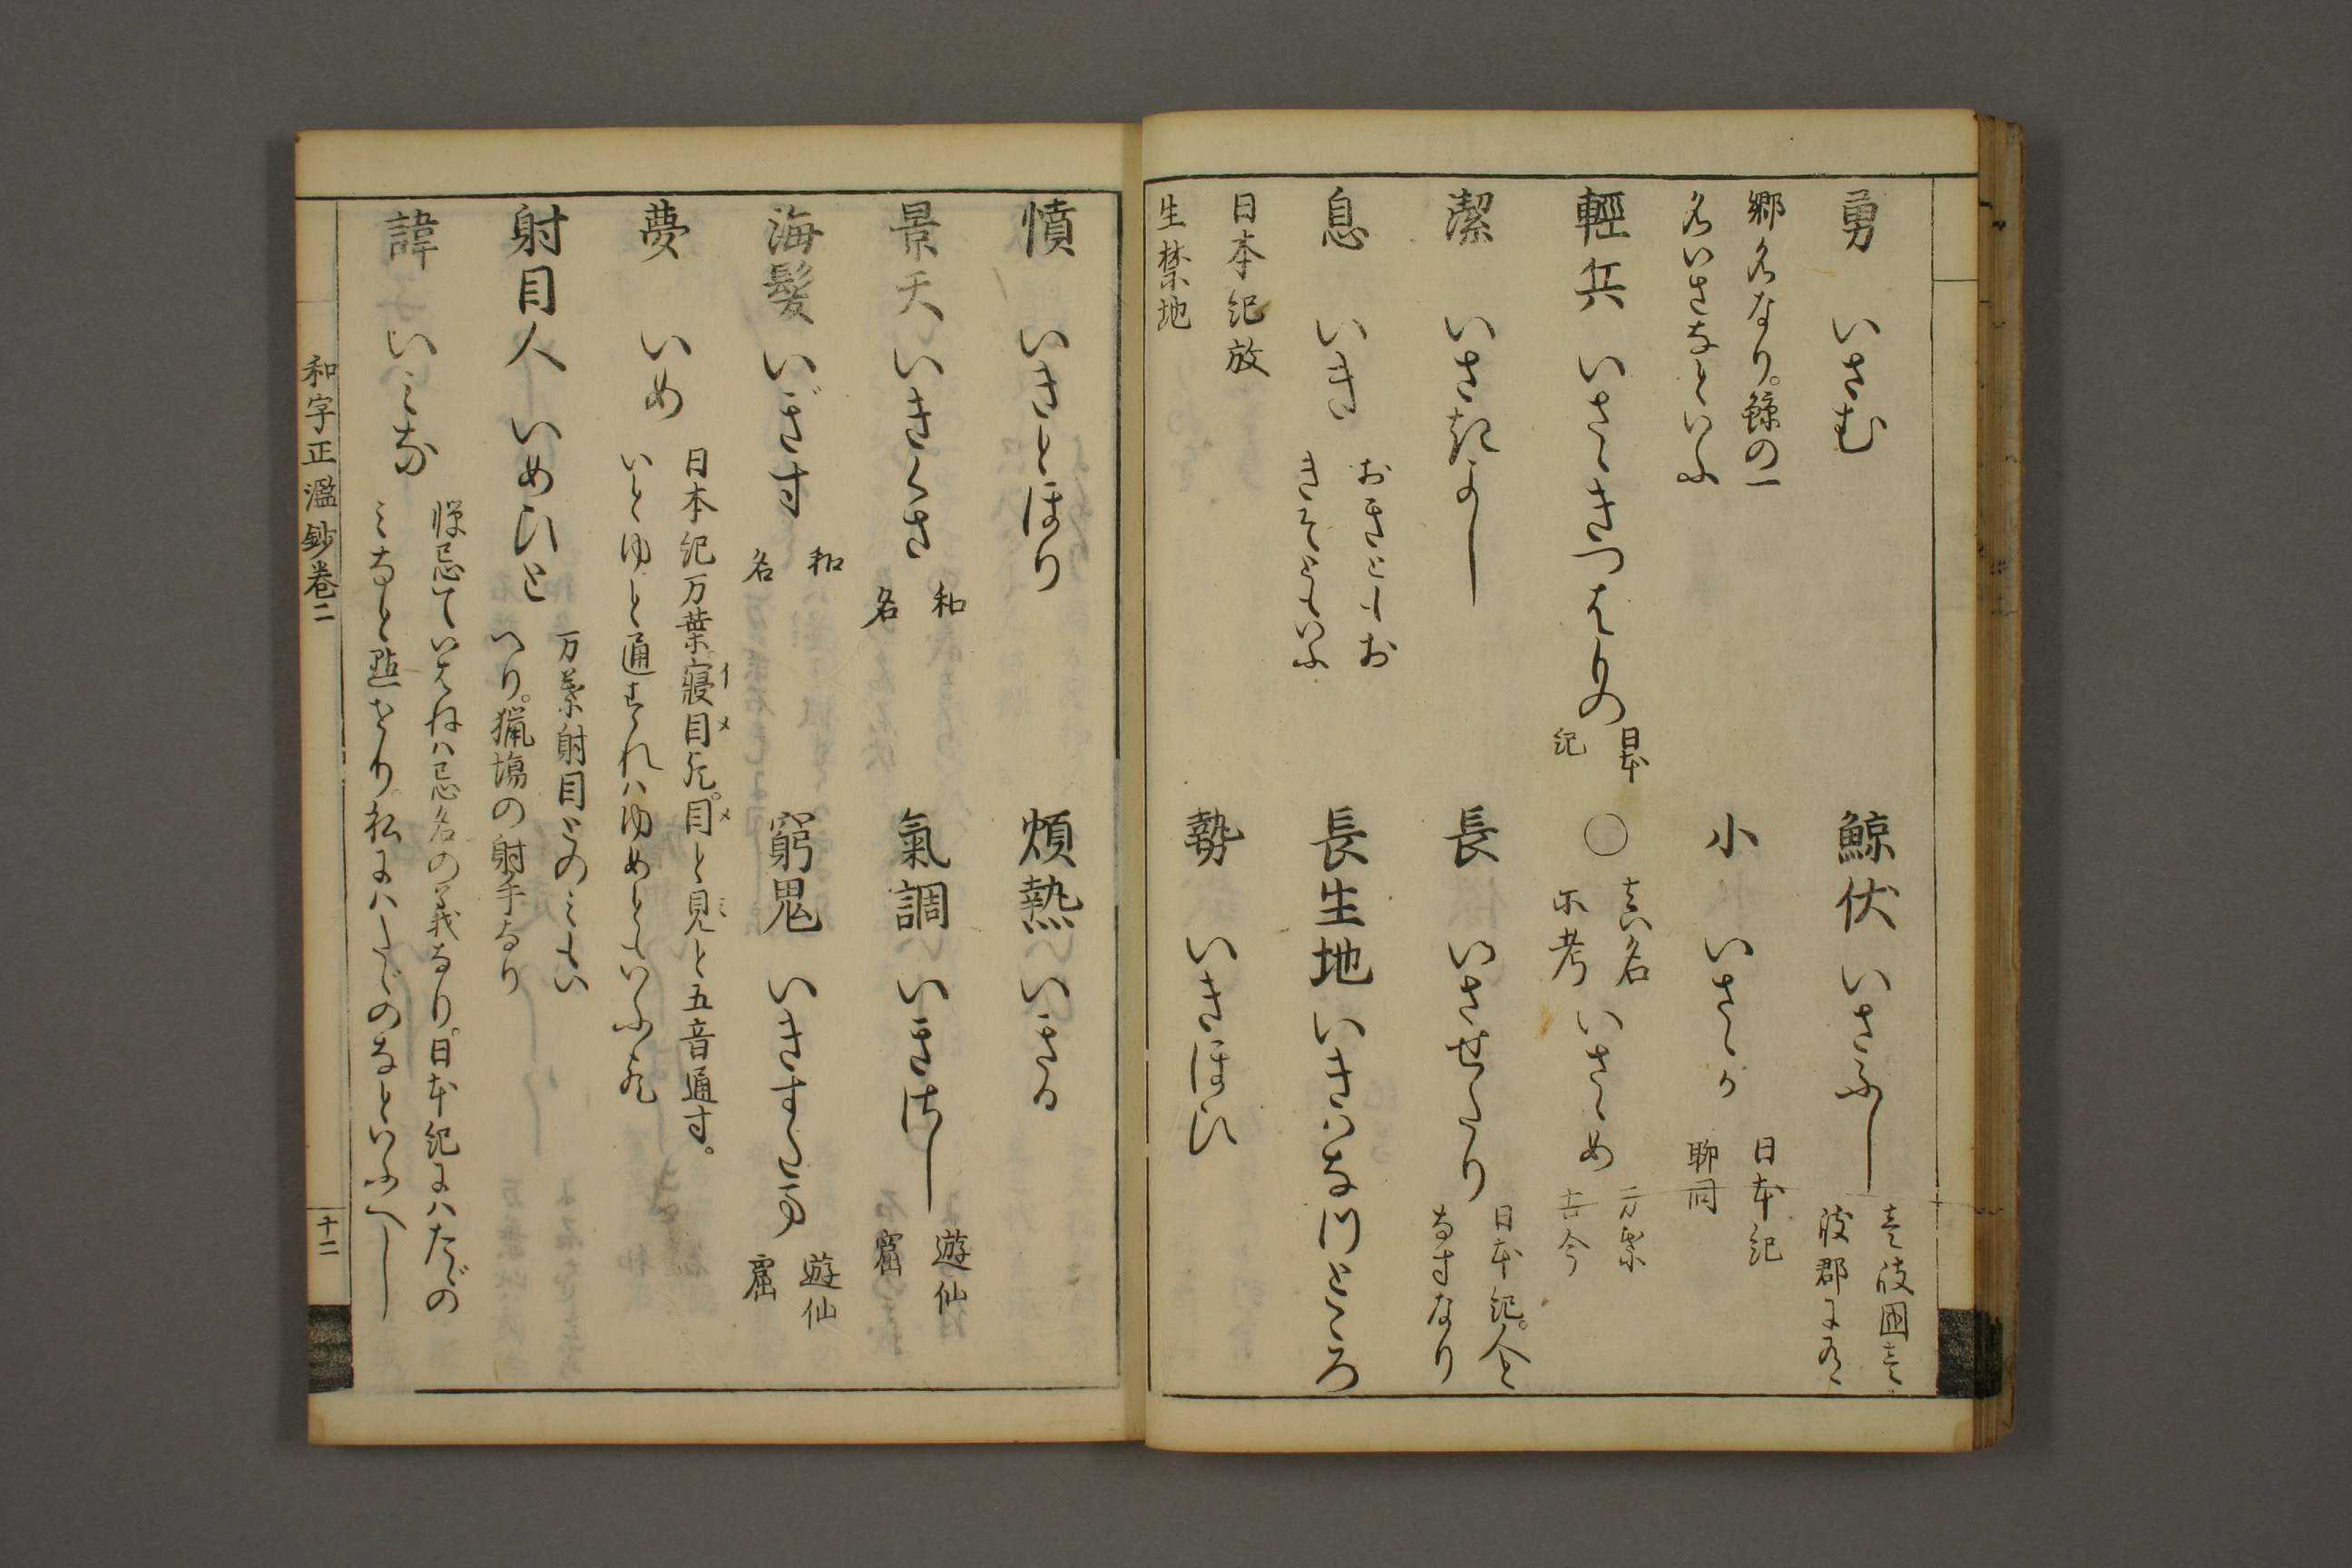 勇 いさむ
鯨伏 いさふし
壹岐國壹
岐郡にあり
郷名なり。鯨の一
名いさなといふ
小 いさゝか
日本紀
聊同
輕兵 いさゝきつはもの
日本
紀
○
真名
不考
いさゝめ
万葉
古今
潔 いさぎよし
長 いさせたり
日本紀。人と
なすなり
息 いき
おきともお
きそともいふ
長生地 いきはなつところ
日本紀放
生禁地
勢 いきほひ
憤 いきとほり
煩熱 いきる
景天 いきくさ
和
名
氣調 いきざし
遊仙
窟
海髮 いぎす
和
名
窮鬼 いきすたま
遊仙
窟
夢 いめ
日本紀万葉寝目也。目と見と五音通す。
イメ メ ミ
いとゆと通すれハゆめともいふ也
射目人 いめひと
万葉射目とのミもい
へり。猟場の射手なり
諱 いみな
憚忌ていはねハ忌名の義なり。日本紀にハたゞの
ミなと點せり。私にハたゞのなといふへし
和字正濫鈔卷二
十二